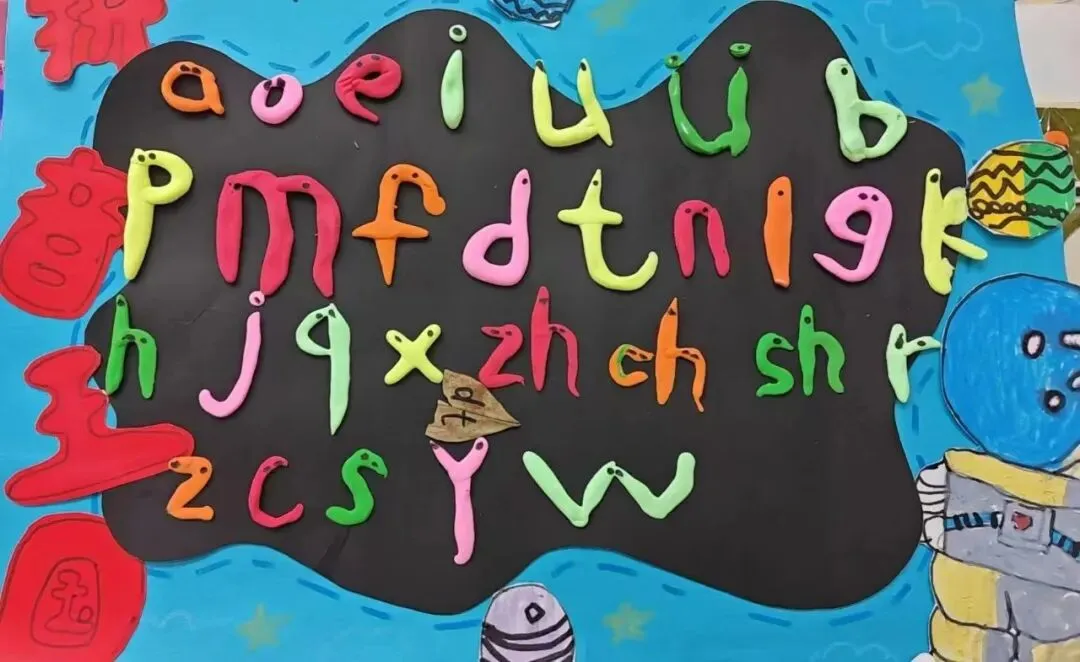 拼音王国
a o e i u ü b
p m f d t n l g k
h j q x zh ch sh r
dt
z c s y w